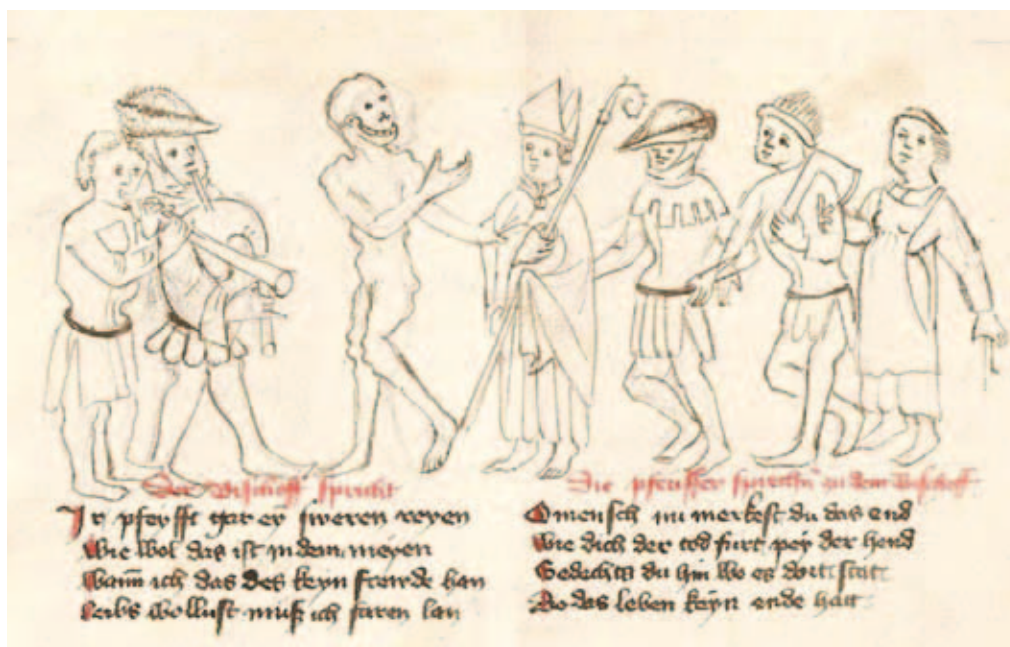 Der Bischoff spricht
Ir pfeyfft gar eyn sweren reyen
Wie wol das ist in dem meyen
Wann ich das des keyn frewde han
Leibs wollust muß ich faren lan
Die pfeiffer sprechen zu dem Bischoff
O mensch nu merkest du das end
Wie dich der tod furt pey der hend
Gedechts du hin wo es dort stat
Do das leben keyn ende hat